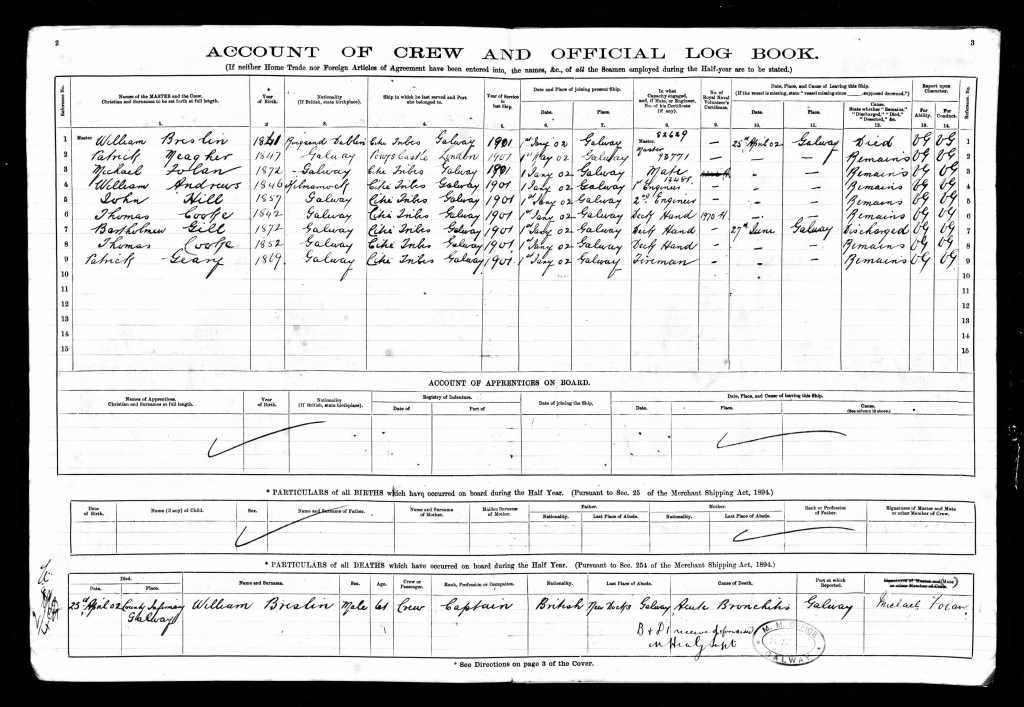 2
3
ACCOUNT OF CREW AND OFFICIAL LOG BOOK.
(If neither Home Trade nor Foreign Articles of Agreement have been entered into, the names, &c., of all the Seamen employed during the Half-year are to be stated.)
Reference No. Names of the MASTER and the Crew. Christian and Surnames to be set forth at full length. Year of Birth. Nationality (If British, state birthplace). Ship in which he last served and Port she belonged to. Year of Service in last Ship. Date and Place of joining present Ship. In what Capacity engaged, and, if Mate, or Engineer, No. of his Certificate (if any). No. of Royal Naval Volunteer's Certificate Date, Place, and Cause of Leaving this Ship. Report upon Character. Reference No.
Date. Place. Date. Place. Cause. State whether "Remains," "Discharged," "Died," "Deserted," &c. For Ability. For Conduct.
1. 2 3. 4. 5. 6. 7. 8. 9. 10. 11. 12. 13. 14.
1 Master William Breslin Galway 1901 1st Jany 02 Galway Master 82629 — 25th April 02 Galway Died VG VG 1
2 Patrick Meagher 1847 Galway London 1901 1st Galway 73771 — — Remains VG VG 2
3 Michael Folan 1872 Galway Galway 1901 1 Jany 02 Galway Mate — — Remains VG VG 3
4 William Andrews 1846 Kilmarnock Galway 1901 1 Jany 02 Galway 1st Engineer — — — Remains VG VG 4
5 John Hill 1857 Galway Galway 1901 1st Jany 02 Galway 2nd Engineer — — — Remains VG VG 5
6 Thomas Cooke 1842 Galway Galway 1901 1st Jany 02 Galway Deck Hand — — Remains VG VG 6
7 Bartholmew Gill 1872 Galway Galway 1901 1st Jany 02 Galway Deck Hand — 27th June Galway Discharged VG VG 7
8 Thomas Cooke 1852 Galway Galway 1901 1st Jany 02 Galway Deck Hand — — — Remains VG VG 8
9 Patrick Geary 1869 Galway Galway 1901 1st Jany 02 Galway Fireman — — — Remains VG VG 9
10 10
11 11
12 12
13 13
14 14
15 15
ACCOUNT OF APPRENTICES ON BOARD.
Names of Apprentices. Christian and Surnames at full length. Year of Birth. Nationality (If British, state birthplace). Registry of Indenture. Date of joining the Ship. Date, Place, and Cause of leaving this Ship.
Date of Port of Date. Place. Cause. (See column 12 above.)
* PARTICULARS of all BIRTHS which have occurred on board during the Half Year. (Pursuant to Sec. 25 of the Merchant Shipping Act, 1894.)
Date of Birth. Name (if any) of Child. Sex. Name and Surname of Father. Name and Surname of Mother. Maiden Surname of Mother. Father. Mother. Rank or Profession of Father. Signatures of Master and Mate or other Member of Crew.
Nationality. Last Place of Abode. Nationality. Last Place of Abode.
* PARTICULARS of all DEATHS which have occurred on board during the Half Year. (Pursuant to Sec. 254 of the Merchant Shipping Act, 1894.)
Died. Name and Surname. Sex. Age. Crew or Passenger. Rank, Profession or Occupation. Nationality. Last Place of Abode. Cause of Death. Port at which Reported. Signatures of Master and Mate or other Member of Crew.
Date. Place.
25th April 02 County Infirmary Galway William Breslin Male 61 Crew Captain British New Docks Galway Acute Bronchitis Galway Michael Folan
B & D1 received & forwarded
M Healy Supt
M. M. OFFICE
GALWAY
* See Directions on page 3 of the Cover.